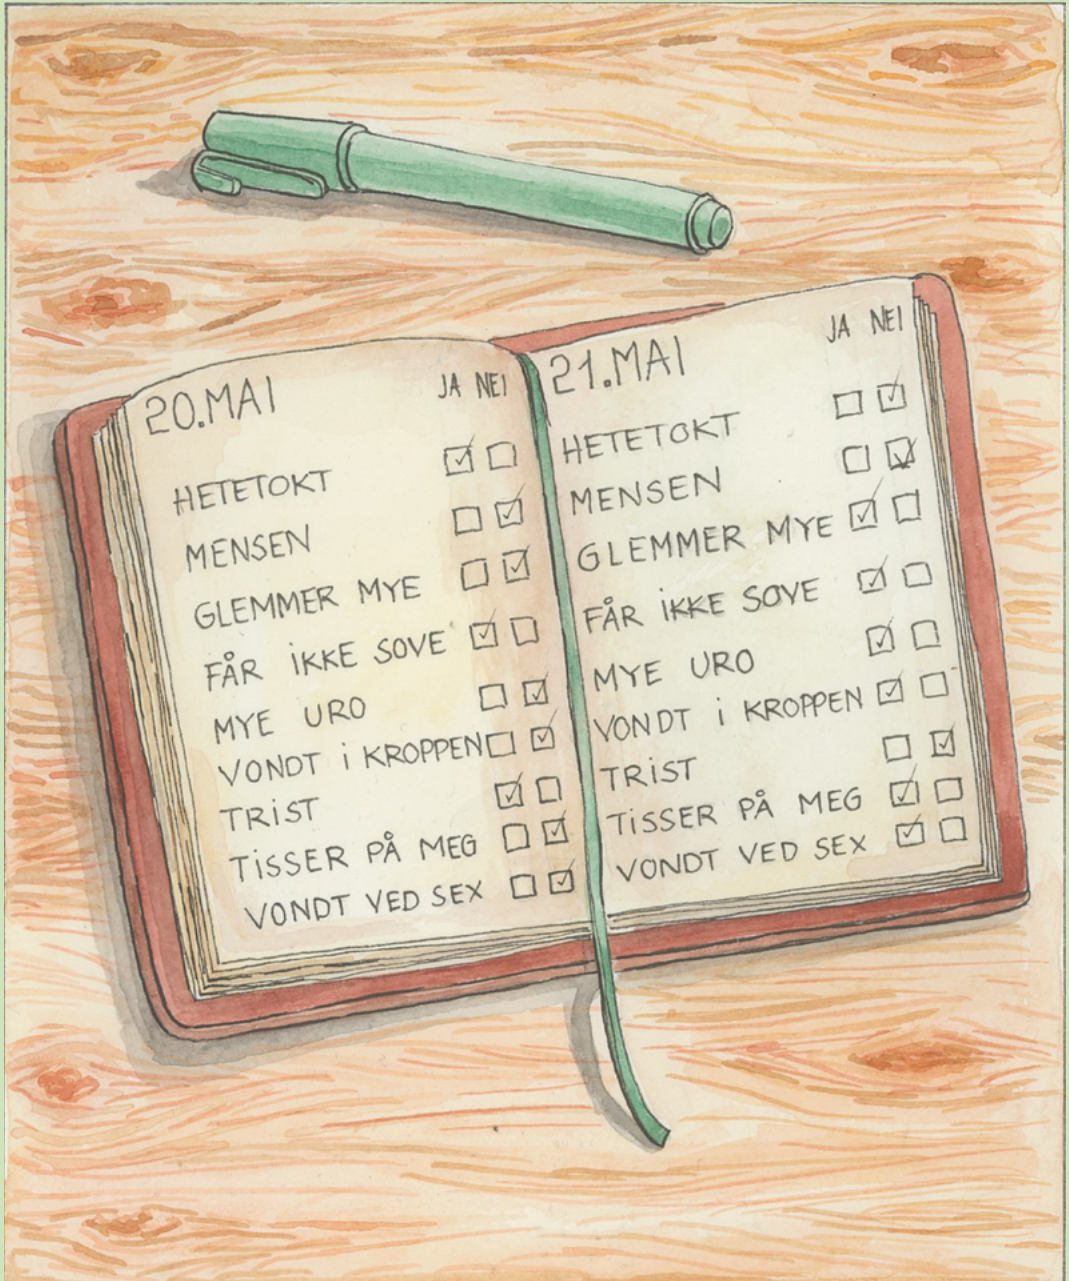 20.MAI JA NEI
HETETOKT
MENSEN
GLEMMER MYE
FÅR iKKE SOVE
MYE URO
VONDT i KROPPEN
TRiST
TiSSER PÅ MEG
VONDT VED SEX
21.MAI JA NEI
HETETOKT
MENSEN
GLEMMER MYE
FÅR iKKE SOVE
MYE URO
VONDT i KROPPEN
TRiST
TiSSER PÅ MEG
VONDT VED SEX